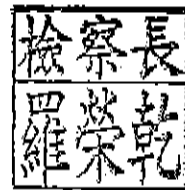 檢察長
羅榮乾